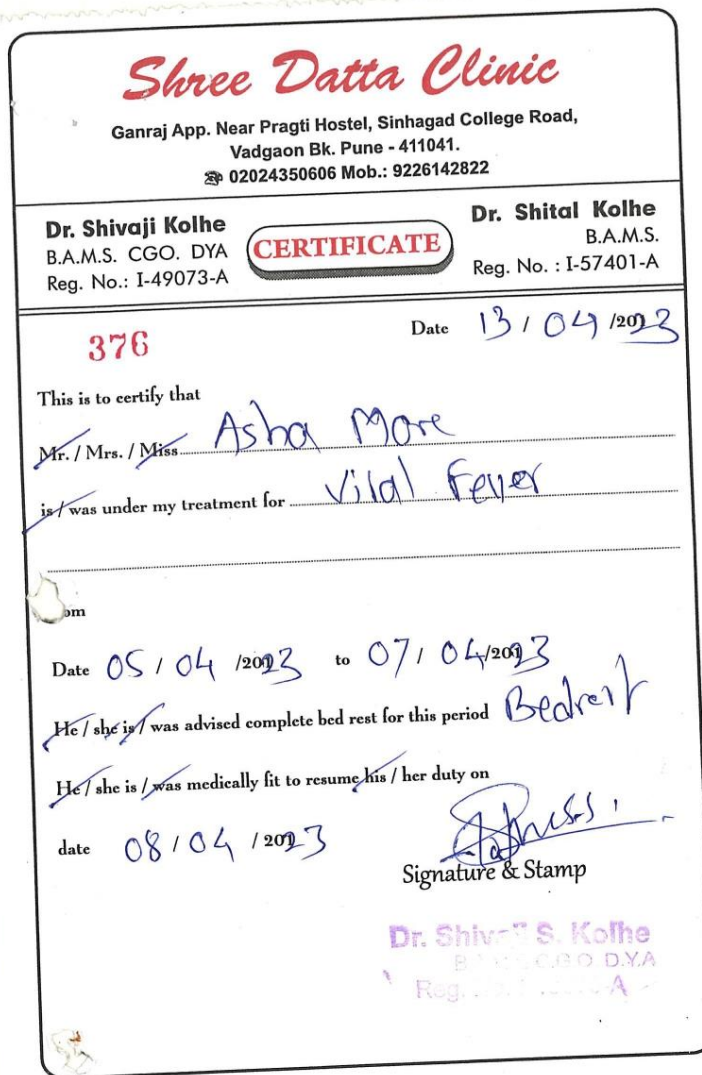 Shree Datta Clinic
Ganraj App. Near Pragti Hostel, Sinhagad College Road,
Vadgaon Bk. Pune - 411041.
☎ 02024350606 Mob.: 9226142822
Dr. Shivaji Kolhe
B.A.M.S. CGO. DYA
Reg. No.: I-49073-A
CERTIFICATE
Dr. Shital Kolhe
B.A.M.S.
Reg. No. : I-57401-A
376
Date 13 / 04 /2023
This is to certify that
Mr. / Mrs. / Miss Asha More
is / was under my treatment for Viral Fever
om
Date 05 / 04 /2023 to 07 / 04/2023
He / she is / was advised complete bed rest for this period Bedrest
He / she is / was medically fit to resume his / her duty on
date 08 / 04 / 2023
Signature & Stamp
Dr. S. Kolhe
D.Y.A
Reg.